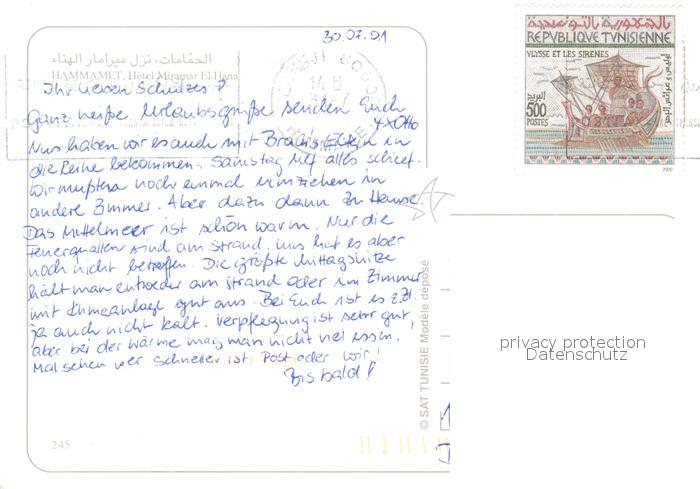 30.07.01
الحمّامات، نزل ميرامار الهناء
HAMMAMET, Hôtel Miramar El-Hana
Ihr lieben Schulzes!
Ganz heiße Urlaubsgrüße senden Euch
4xOtto
Nus haben wir es auch mit Brauns Eltern in
die Reihe bekommen. Samstag lief alles schief.
Wir mußten noch einmal umziehen in
andere Zimmer. Aber dazu dann zu Hause.
Das Mittelmeer ist schön warm. Nur die
Feuerquallen sind am Strand. Uns hat es aber
noch nicht betroffen. Die größte Mittagshitze
hält man entweder am Strand oder im Zimmer
mit Klimeanlage gut aus. Bei Euch ist es z.Zt.
ja auch nicht kalt. Verpflegung ist sehr gut,
aber bei der Wärme mag man nicht viel essen.
Mal sehen wer schneller ist Post oder wir!
Bis bald!
245
© SAT TUNISIE Modèle déposé
الجمهورية التونسية
REPVBLIQVE TVNISIENNE
VLYSSE ET LES SIRENES
أوليس وعرائس البحر
البريد
500
POSTES
2000
14 H
privacy protection
Datenschutz